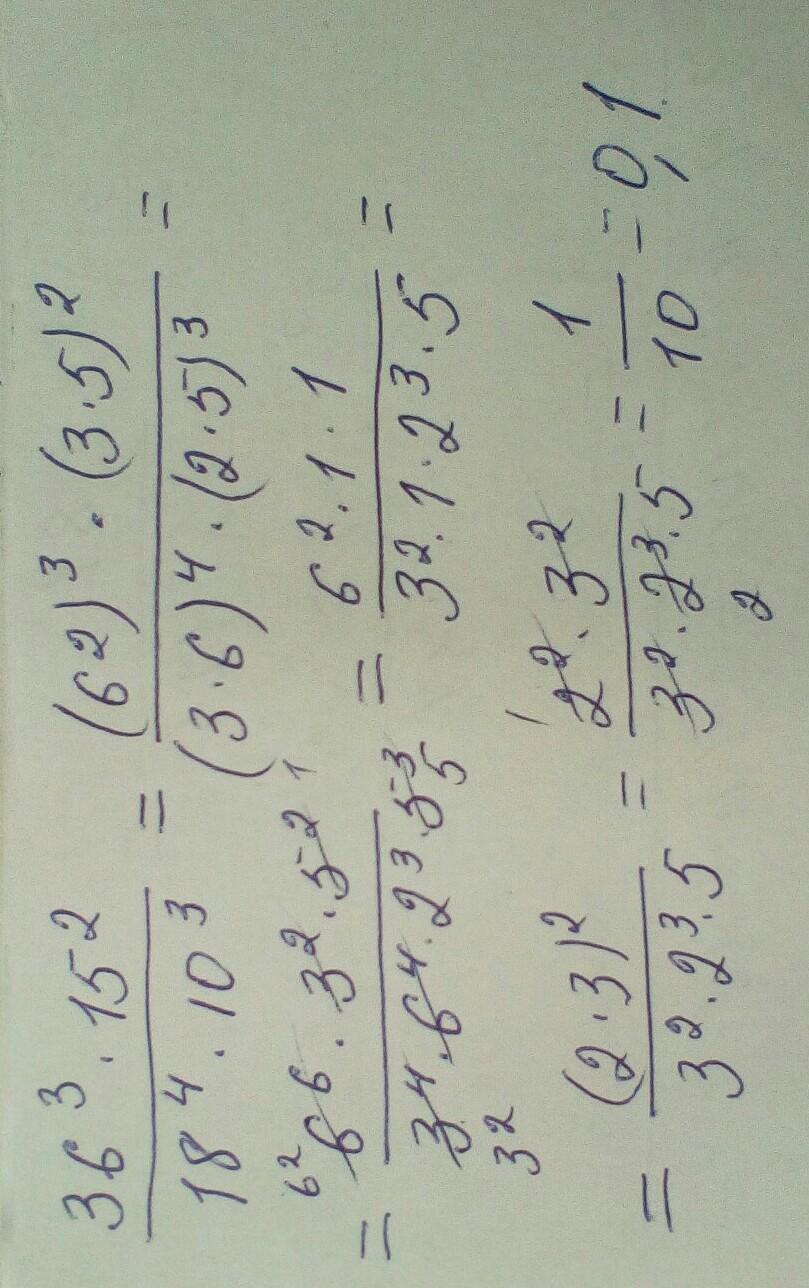 36³ · 15² / 18⁴ · 10³ = (6²)³ · (3·5)² / (3·6)⁴ · (2·5)³ =
= 6² 6⁶ · 3² · 5² 1 / 3⁴ · 6⁴ · 2³ · 5³ 3² 5 = 6² · 1 · 1 / 3² · 1 · 2³ · 5 =
= (2·3)² / 3² · 2³ · 5 = 1 2² · 3² / 3² · 2³ · 5 2 = 1 / 10 = 0,1